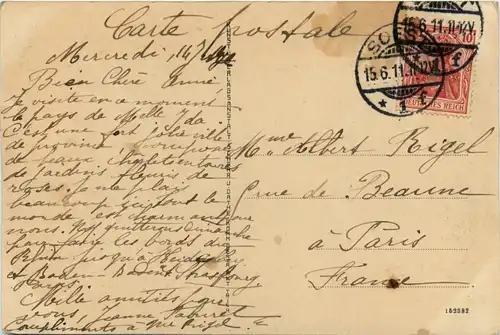 Carte postale
Mercredi 14
Bien Chère
Je visite en ce moment
le pays de Melle
C'est une fort jolie ville
de province,
de beaux
de jardins fleuris de
roses. Je me plais
beaucoup ici tout le
monde est charmant pour
nous. Nous quitterons dimanche
pour faire les bords du
Rhin jusqu'à
et Baden Baden Strasbourg
Paris.
Mille amitiés pour
vous, Jeanne
compliments à Mr Rigel
SOEST
15.6.11.11-12V.
15.6.11.11-12V.
* 1 f
10
DEUTSCHES REICH
Mme Albert Rigel
rue de Beaune
à Paris
France
152582